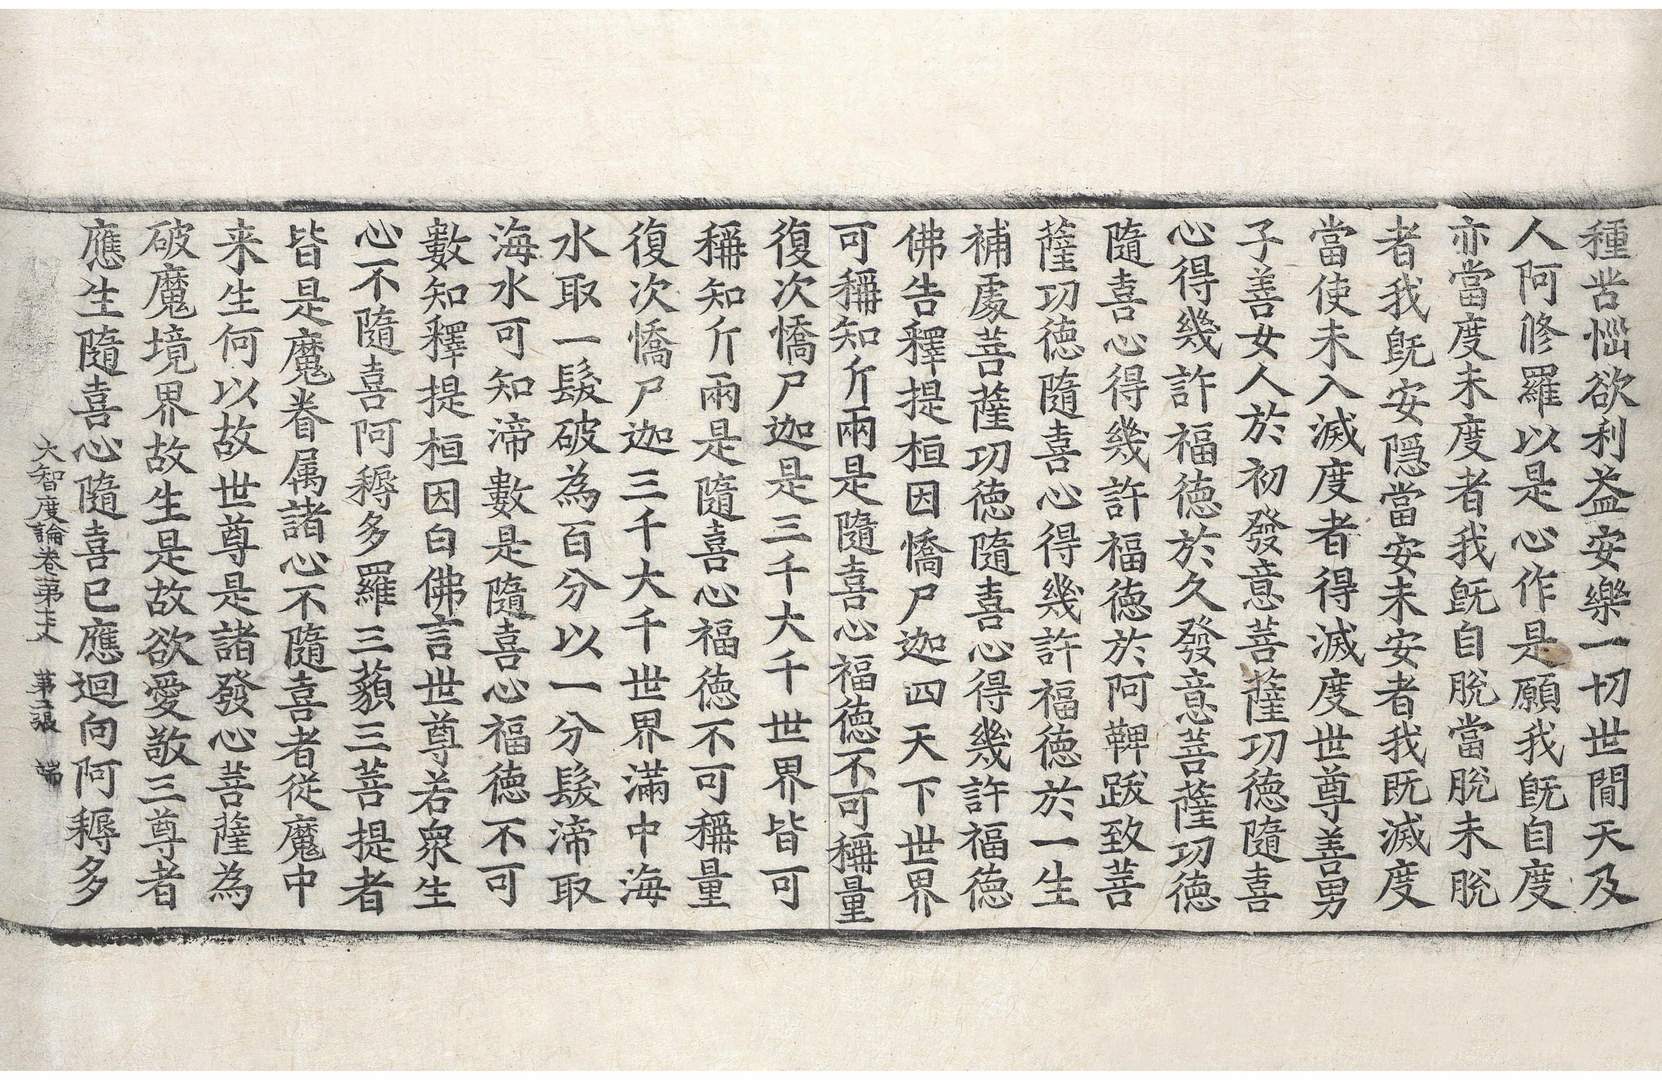 種苦惱欲利益安樂一切世間天及
人阿修羅以是心作是願我既自度
亦當度未度者我既自脫當脫未脫
者我既安隱當安未安者我既滅度
當使未入滅度者得滅度世尊善男
子善女人於初發意菩薩功德隨喜
心得幾許福德於久發意菩薩功德
隨喜心得幾許福德於阿鞞跋致菩
薩功德隨喜心得幾許福德於一生
補處菩薩功德隨喜心得幾許福德
佛告釋提桓因憍尸迦四天下世界
可稱知斤兩是隨喜心福德不可稱量
復次憍尸迦是三千大千世界皆可
稱知斤兩是隨喜心福德不可稱量
復次憍尸迦三千大千世界滿中海
水取一髮破為百分以一分髮渧取
海水可知渧數是隨喜心福德不可
數知釋提桓因白佛言世尊若眾生
心不隨喜阿耨多羅三藐三菩提者
皆是魔眷属諸心不隨喜者從魔中
来生何以故世尊是諸發心菩薩為
破魔境界故生是故欲愛敬三尊者
應生隨喜心隨喜已應迴向阿耨多
大智度論卷第 第二張 端